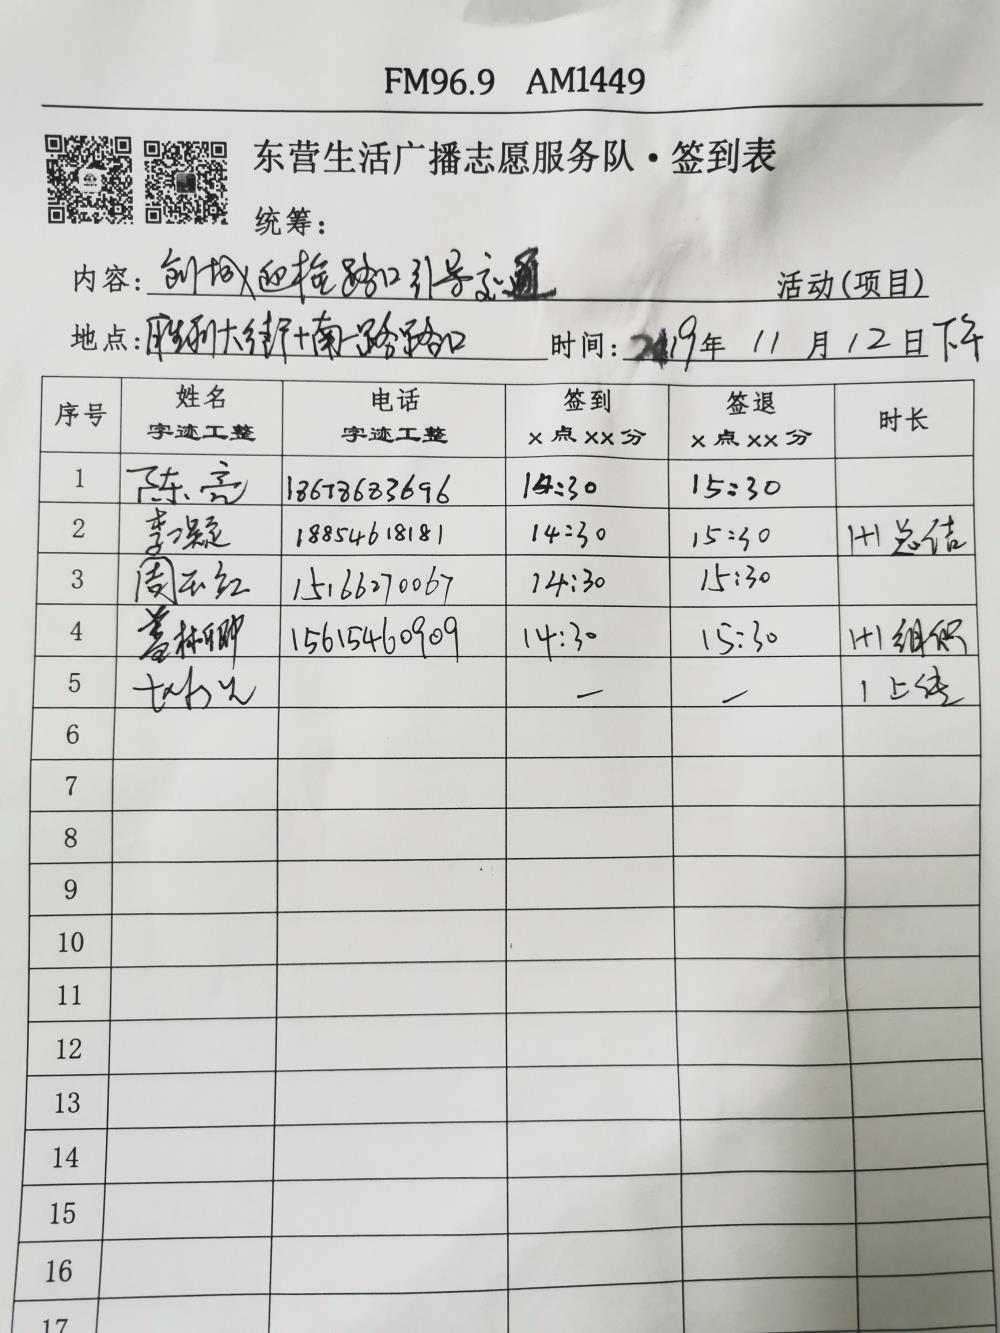 FM96.9 AM1449
东营生活广播志愿服务队·签到表
统筹：
内容：创城迎检路口引导交通 活动（项目）
地点：胜利大街+南一路路口 时间：2019年11月12日下午
序号 姓名 字迹工整 电话 字迹工整 签到 x点xx分 签退 x点xx分 时长
1 陈亮 18678683696 14:30 15:30
2 李凝 18854618181 14:30 15:30 1+1 总结
3 周玉红 15166270067 14:30 15:30
4 盖林卿 15615460909 14:30 15:30 1+1 组织
5 — — 1 上传
6
7
8
9
10
11
12
13
14
15
16
17